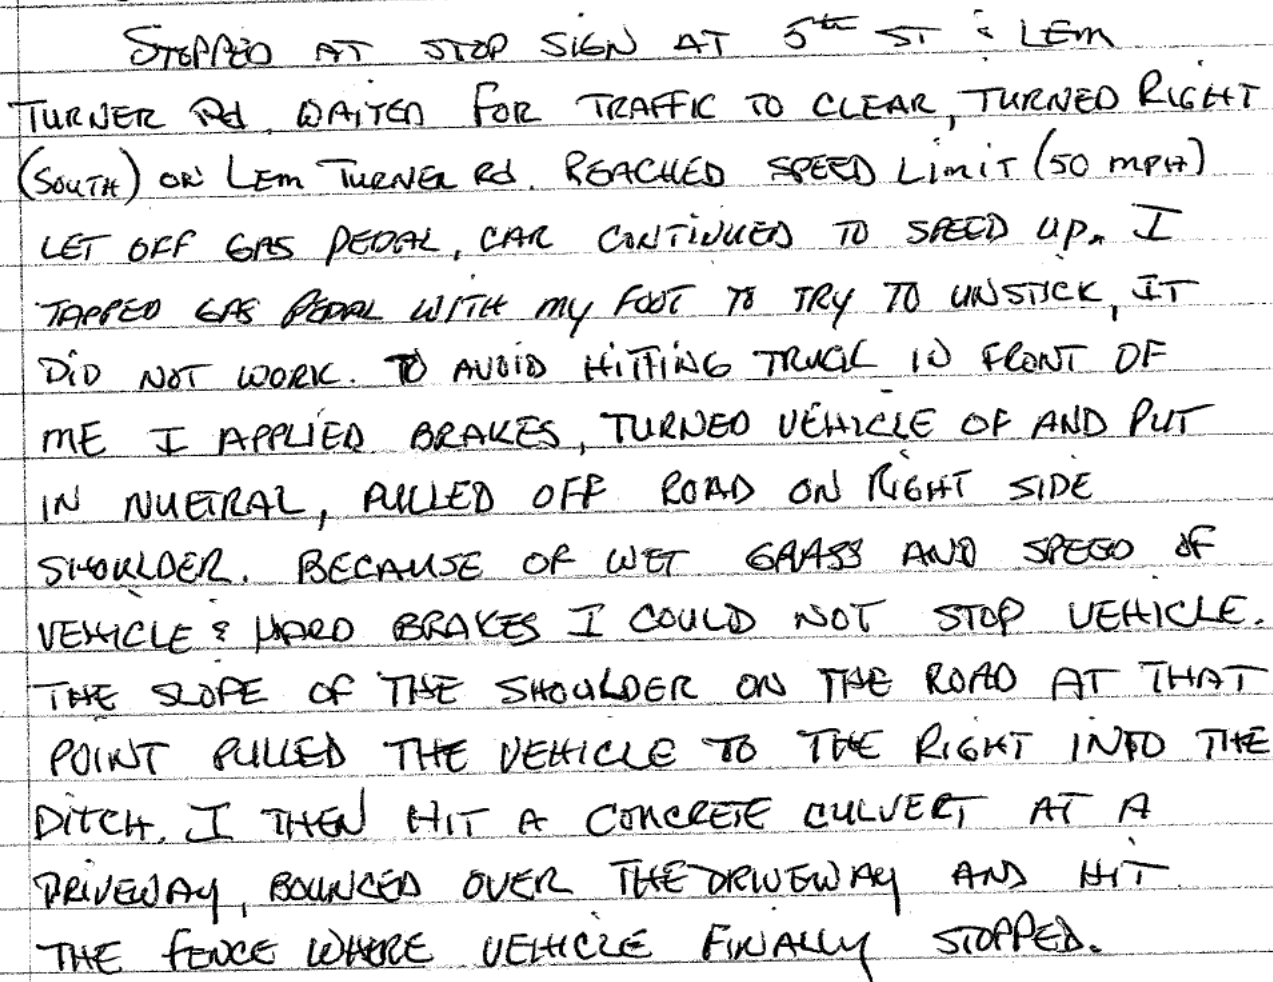 STOPPED AT STOP SIGN AT 5th ST & LEM
TURNER Rd. WAITED FOR TRAFFIC TO CLEAR, TURNED RIGHT
(SOUTH) ON LEM TURNER Rd. REACHED SPEED LIMIT (50 MPH)
LET OFF GAS PEDAL, CAR CONTINUED TO SPEED UP. I
TAPPED GAS PEDAL WITH MY FOOT TO TRY TO UNSTICK, IT
DID NOT WORK. TO AVOID HITTING TRUCK IN FRONT OF
ME I APPLIED BRAKES, TURNED VEHICLE OF AND PUT
IN NUETRAL, PULLED OFF ROAD ON RIGHT SIDE
SHOULDER. BECAUSE OF WET GRASS AND SPEED OF
VEHICLE & HARD BRAKES I COULD NOT STOP VEHICLE.
THE SLOPE OF THE SHOULDER ON THE ROAD AT THAT
POINT PULLED THE VEHICLE TO THE RIGHT INTO THE
DITCH. I THEN HIT A CONCRETE CULVERT AT A
DRIVEWAY, BOUNCED OVER THE DRIVEWAY AND HIT
THE FENCE WHERE VEHICLE FINALLY STOPPED.